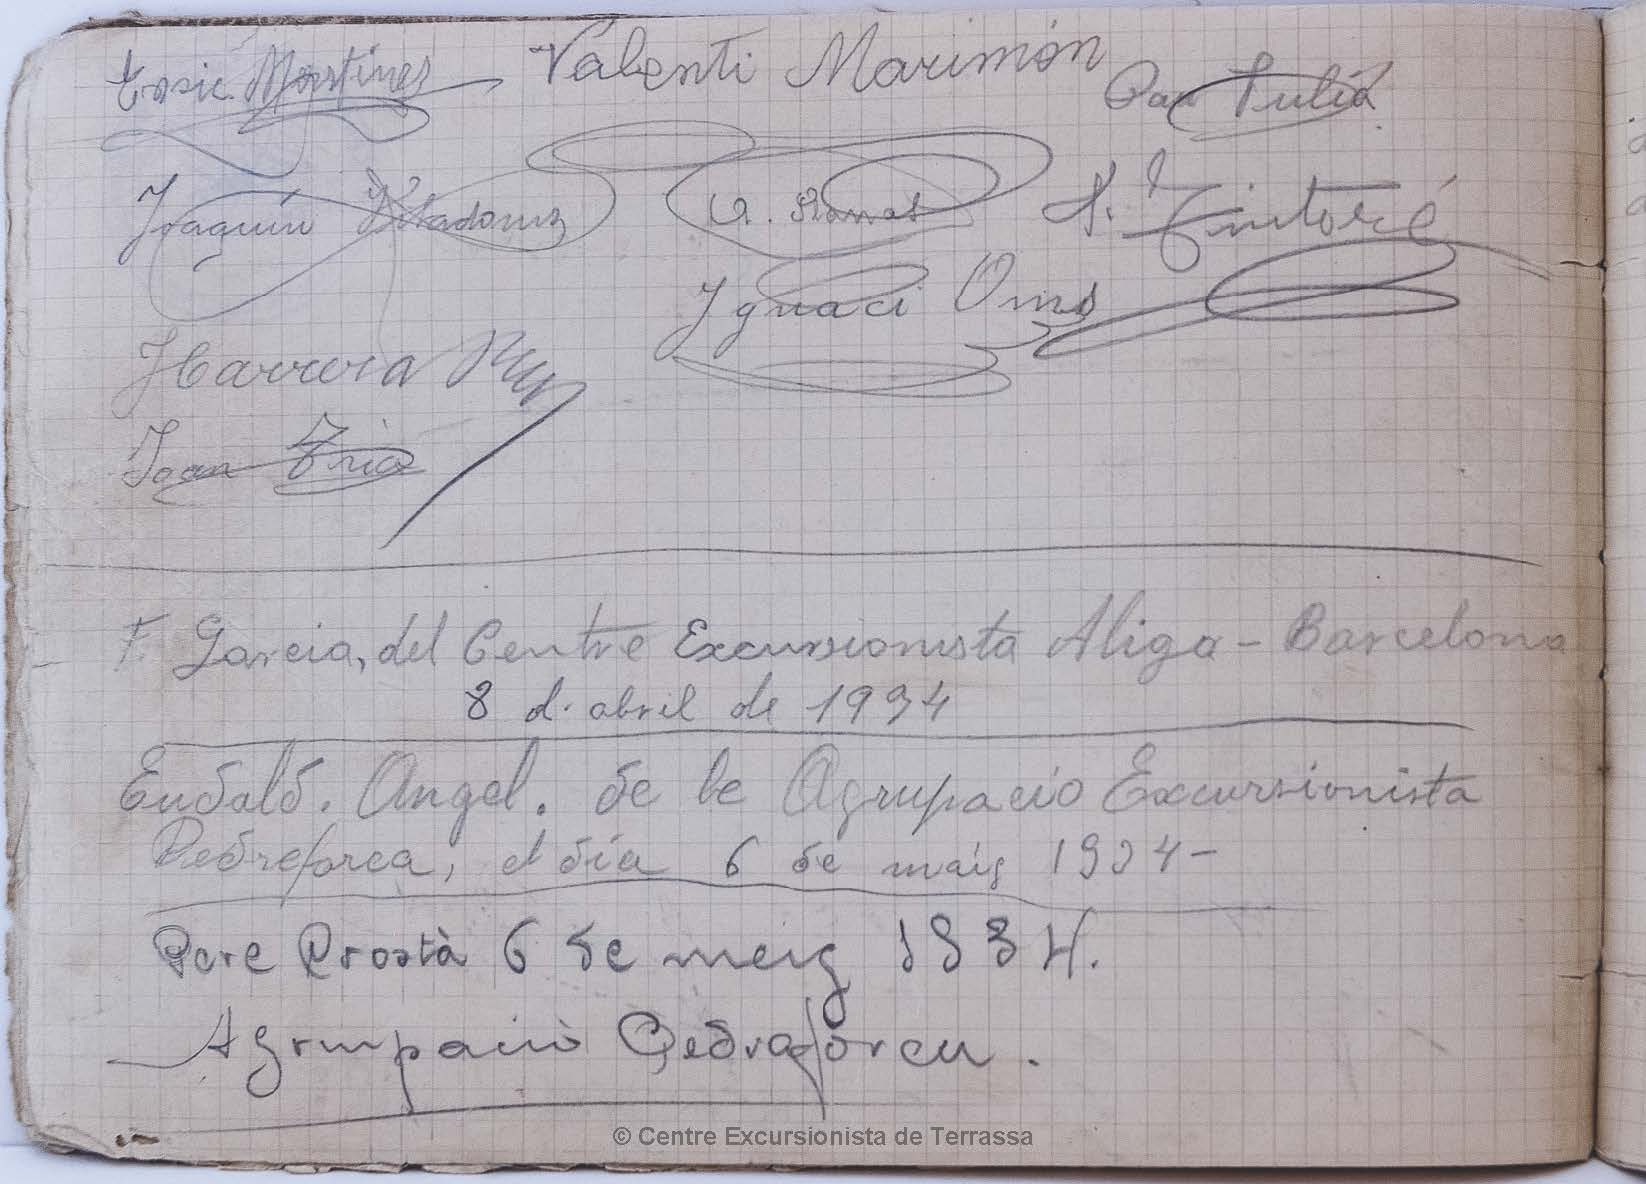 Martines Valentí Marimón Pau Julià
Joaquín Viladoms A. Ranas A. Tintoré
Ignaci Oms
J Barrera
Joan Tria
F. Garcia, del Centre Excursionista Aliga - Barcelona
8 d. abril de 1934
Eudald. Angel. de le Agrupacio Excursionista
Pedreforca, el dia 6 de maig 1934-
Pere Prostà 6 de meig 1934.
Agrupació Pedraforcu.
© Centre Excursionista de Terrassa